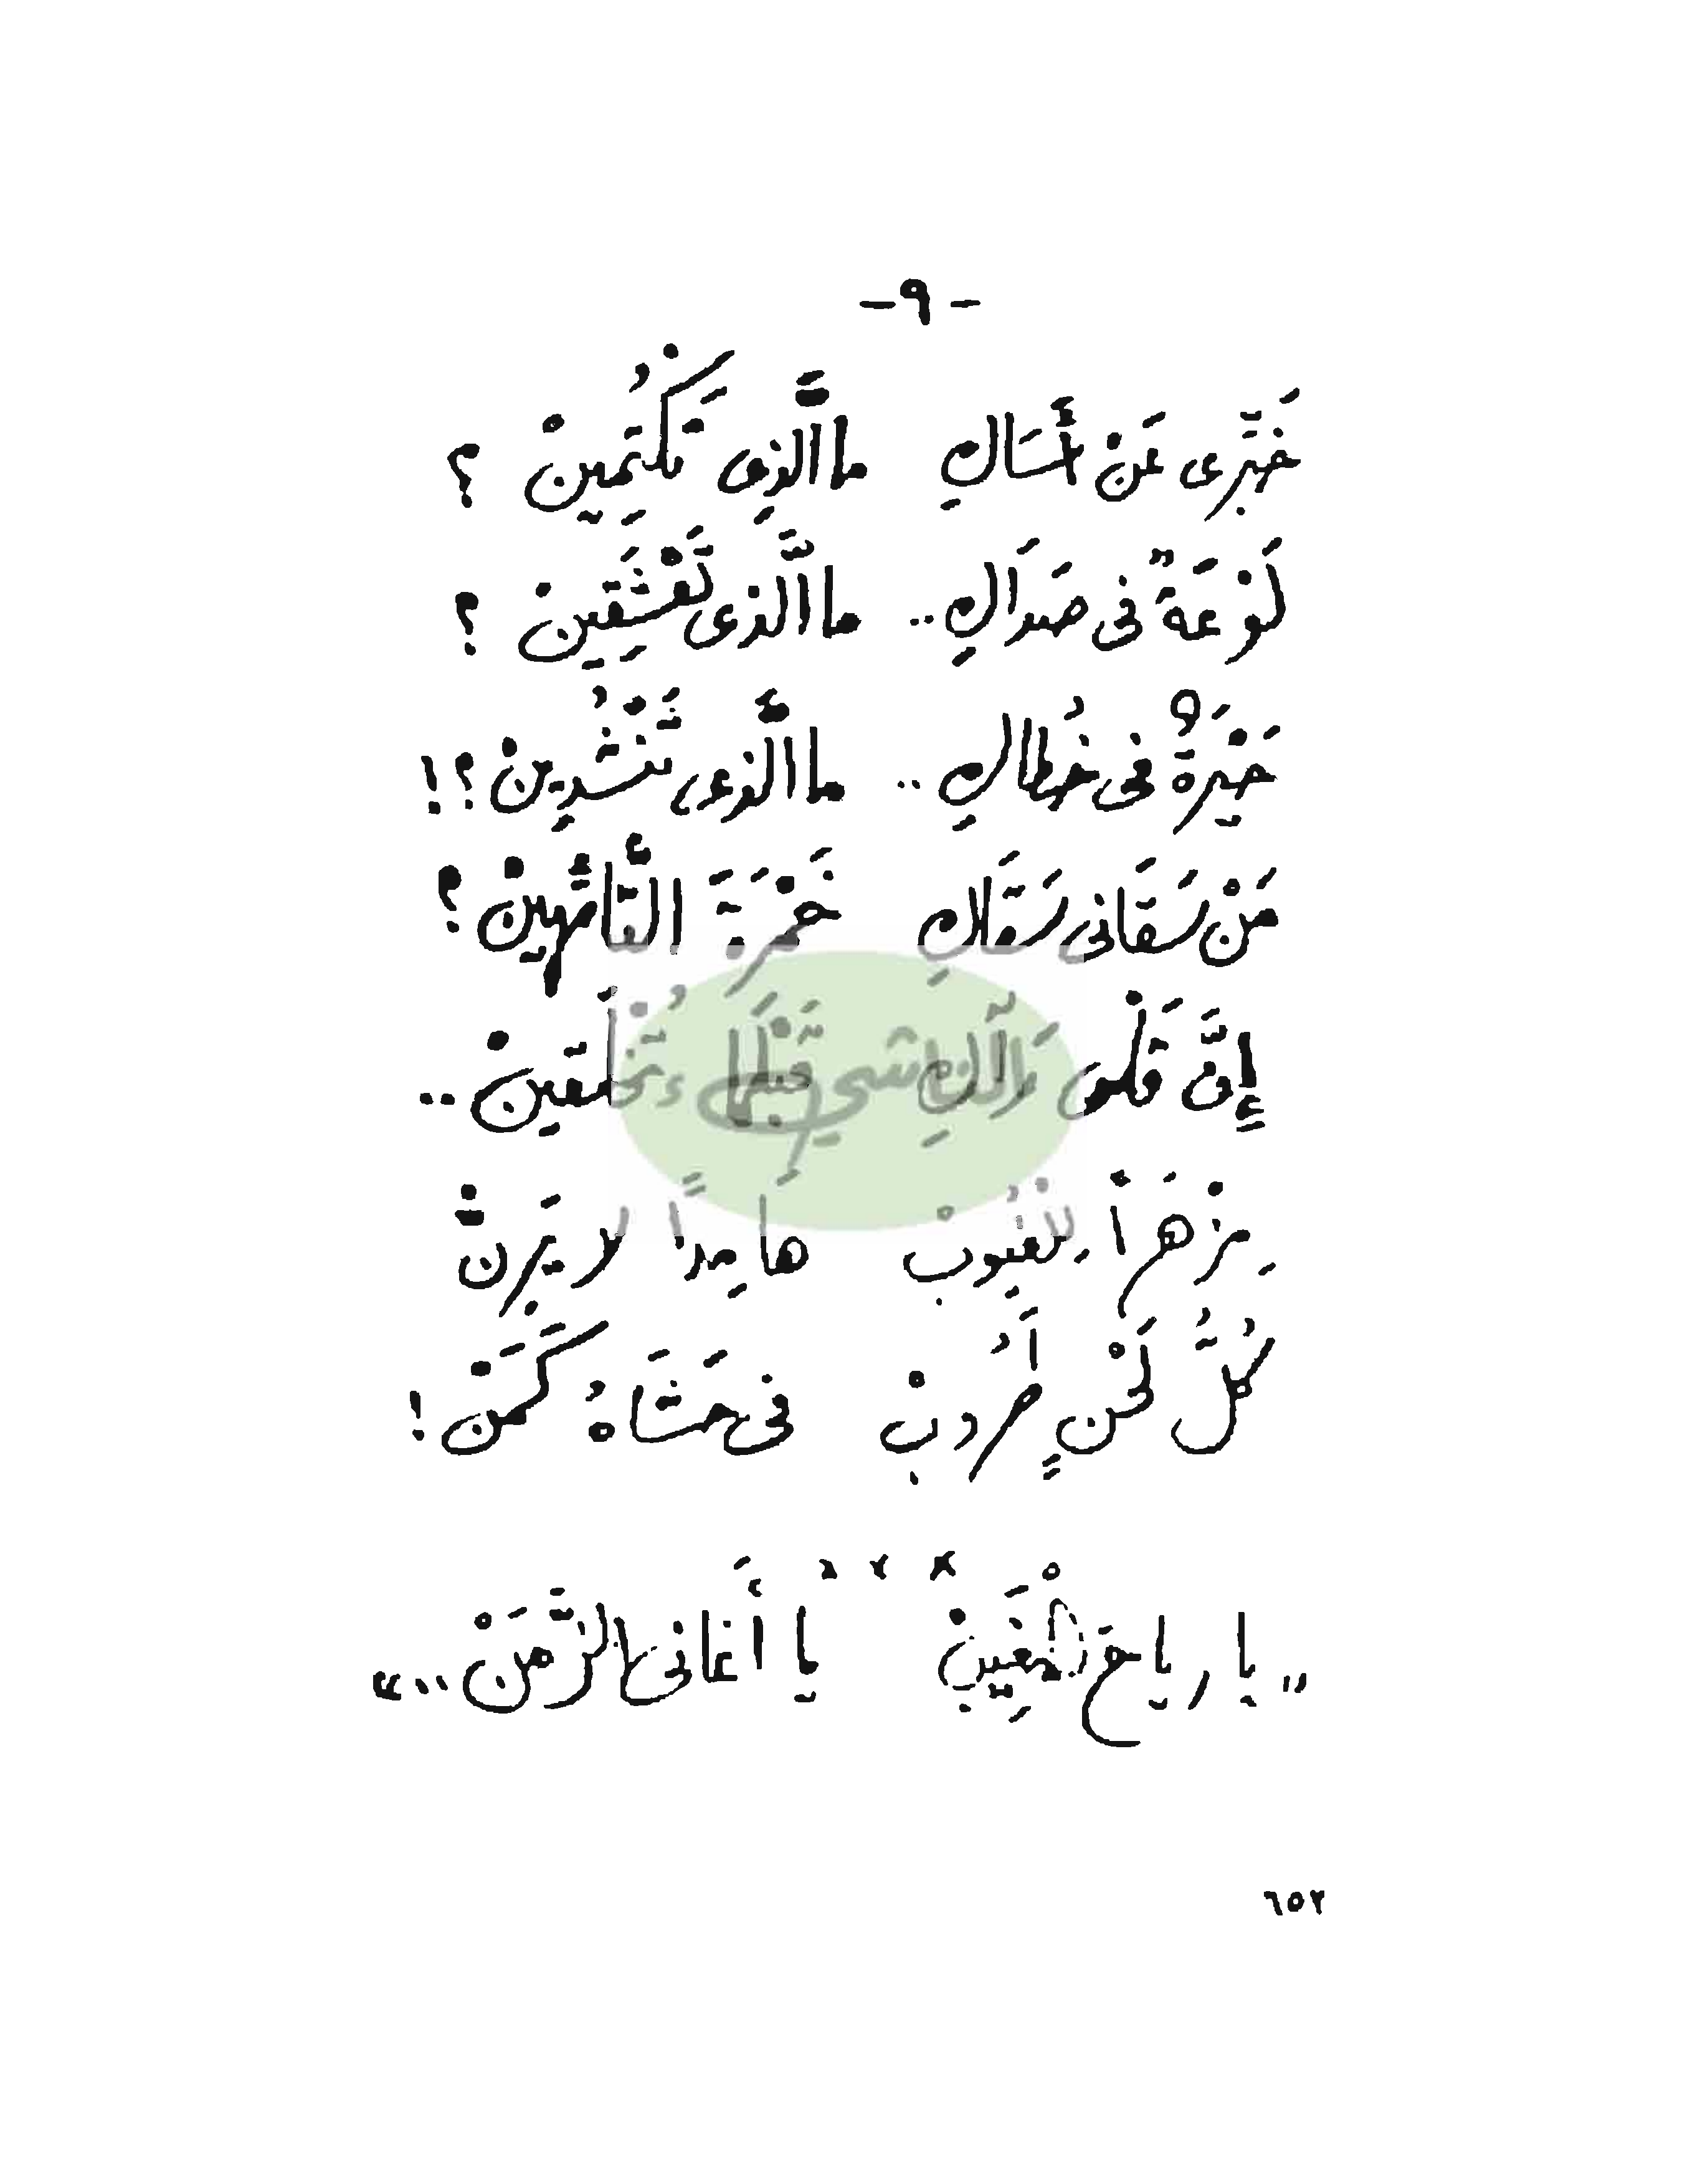 -٩-
خَبِّرِى عَنْ أَسَاكِ   ما الَّذِى تَكْتُمِينْ ؟
لَوْعَةٌ فى صَدَاكِ ..   ما الَّذى تَعْشَقِينْ ؟
حَيْرَةٌ فى خُطاكِ ..   ما الَّذى تَنْشُدِينْ ؟!
مَنْ سَقَانى سَقَاكِ   خَمْرَةَ التَّائِهِينْ ؟
إِنَّ قَلْبى   قَبْلَمَا تُخْلَقِينْ ..
مِزْهَراً لِلْغُيُوبْ   هامِداً لا يَرِنّْ
كُلُّ لَحْنٍ طَرُوبْ   فى حَشَاهُ كَمَنْ !
٭ ٭ ٭
"يا رياحَ الْمَغِيبْ   يا أَغانى الزَّمَنْ .."
٦٥٢